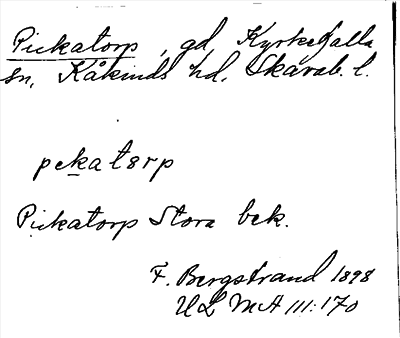 Pickatorp, gd, Kyrkefalla
sn, Kåkinds hd, Skarab. l.
pekatɜrp
Pickatorp Stora bek.
F. Bergstrand 1898
ULMA 111:170